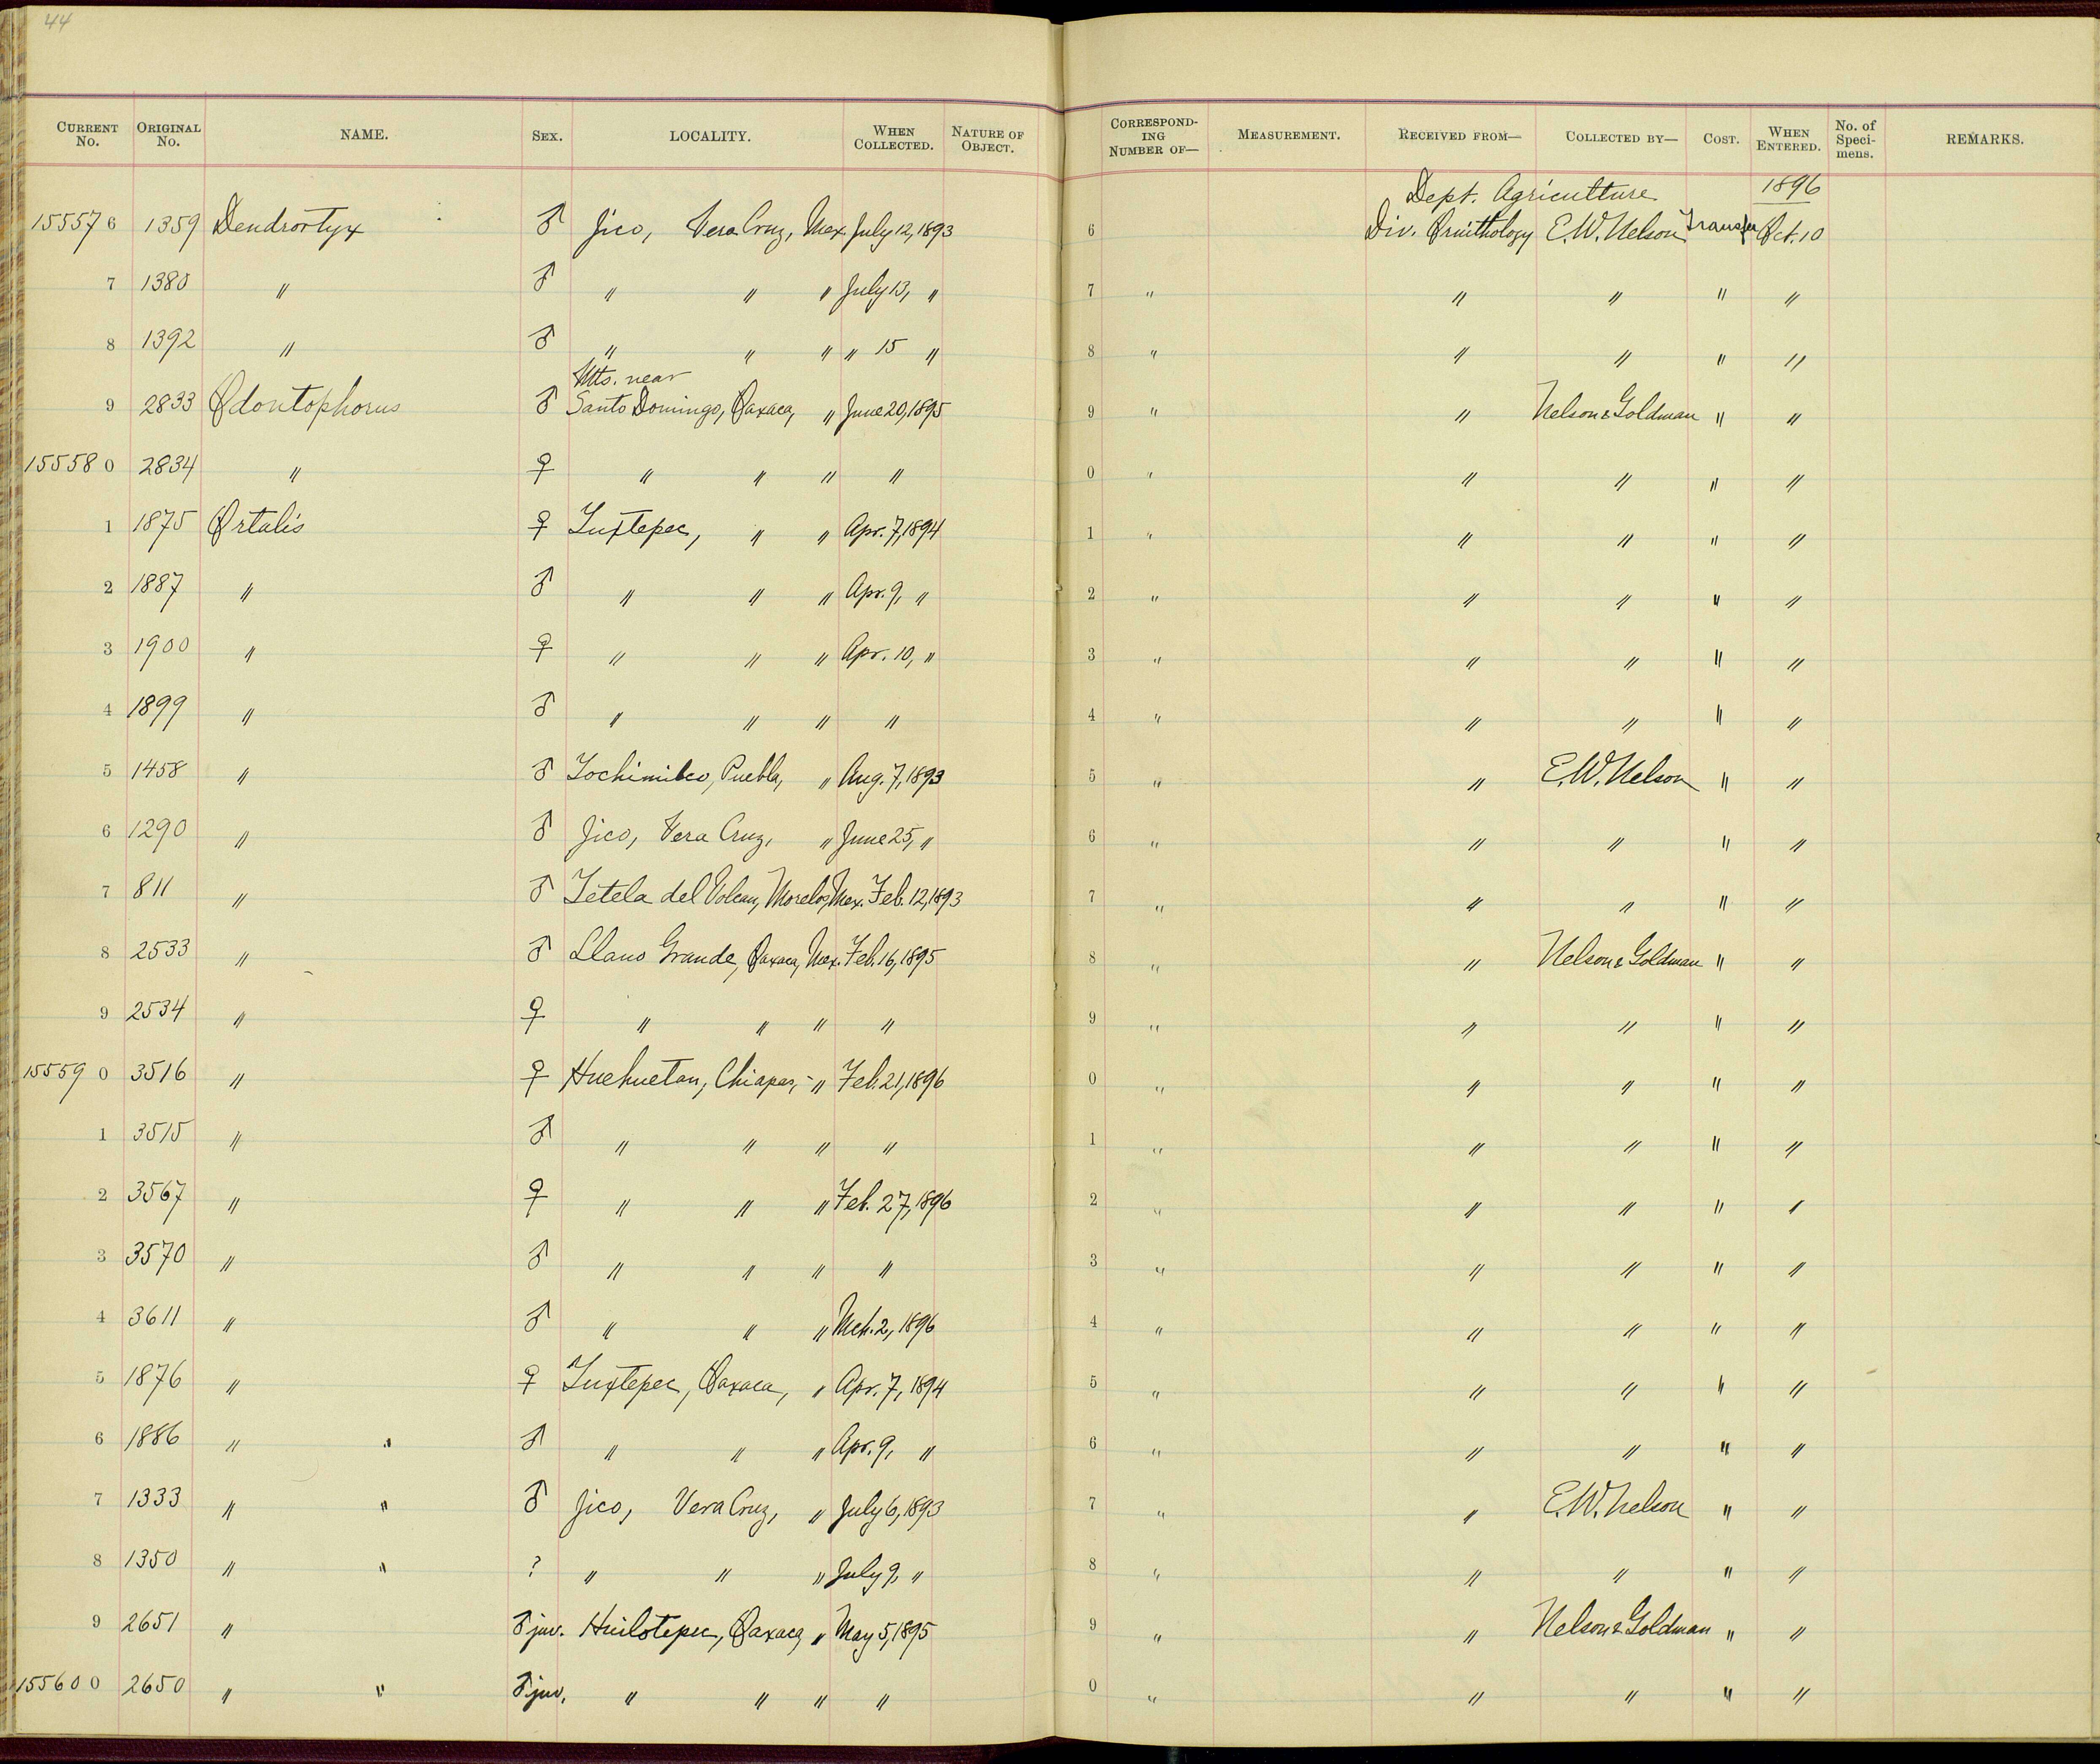 44
CURRENT No. ORIGINAL No. NAME. SEX. LOCALITY. WHEN COLLECTED. NATURE OF OBJECT. CORRESPONDING NUMBER OF— MEASUREMENT. RECEIVED FROM— COLLECTED BY— COST. WHEN ENTERED. No. of Specimens. REMARKS.
Dept. Agriculture 1896
15557 6 1359 Dendrortyx ♂ Jico, Vera Cruz, Mex July 12, 1893 6 Div. Ornithology E.W. Nelson Transfer Oct. 10
7 1380 " ♂ " " " July 13, " 7 " " " " "
8 1392 " ♂ " " " " 15 " 8 " " " " "
Mts. near
9 2833 Odontophorus ♂ Santo Domingo, Oaxaca, " June 20, 1895 9 " " Nelson & Goldman " "
15558 0 2834 " ♀ " " " " 0 " " " " "
1 1875 Ortalis ♀ Tuxtepec, " " Apr. 7, 1894 1 " " " " "
2 1887 " ♂ " " " Apr. 9, " 2 " " " " "
3 1900 " ♀ " " " Apr. 10, " 3 " " " " "
4 1899 " ♂ " " " " 4 " " " " "
5 1458 " ♂ Tochimilco, Puebla, " Aug. 7, 1893 5 " " E.W. Nelson " "
6 1290 " ♂ Jico, Vera Cruz, " June 25, " 6 " " " " "
7 811 " ♂ Tetela del Volcan, Morelos, Mex. Feb. 12, 1893 7 " " " " "
8 2533 " ♂ Llano Grande, Oaxaca, Mex. Feb. 16, 1895 8 " " Nelson & Goldman " "
9 2534 " ♀ " " " " 9 " " " " "
15559 0 3516 " ♀ Huehuetan, Chiapas, " Feb. 21, 1896 0 " " " " "
1 3515 " ♂ " " " " 1 " " " " "
2 3567 " ♀ " " " Feb. 27, 1896 2 " " " " "
3 3570 " ♂ " " " " 3 " " " " "
4 3611 " ♂ " " " Mch. 2, 1896 4 " " " " "
5 1876 " ♀ Tuxtepec, Oaxaca, " Apr. 7, 1894 5 " " " " "
6 1886 " " ♂ " " " Apr. 9, " 6 " " " " "
7 1333 " " ♂ Jico, Vera Cruz, " July 6, 1893 7 " " E.W. Nelson " "
8 1350 " " ? " " " July 9, " 8 " " " " "
9 2651 " ♂ juv. Huilotepec, Oaxaca, " May 5, 1895 9 " " Nelson & Goldman " "
15560 0 2650 " " ♂ juv. " " " " 0 " " " " "